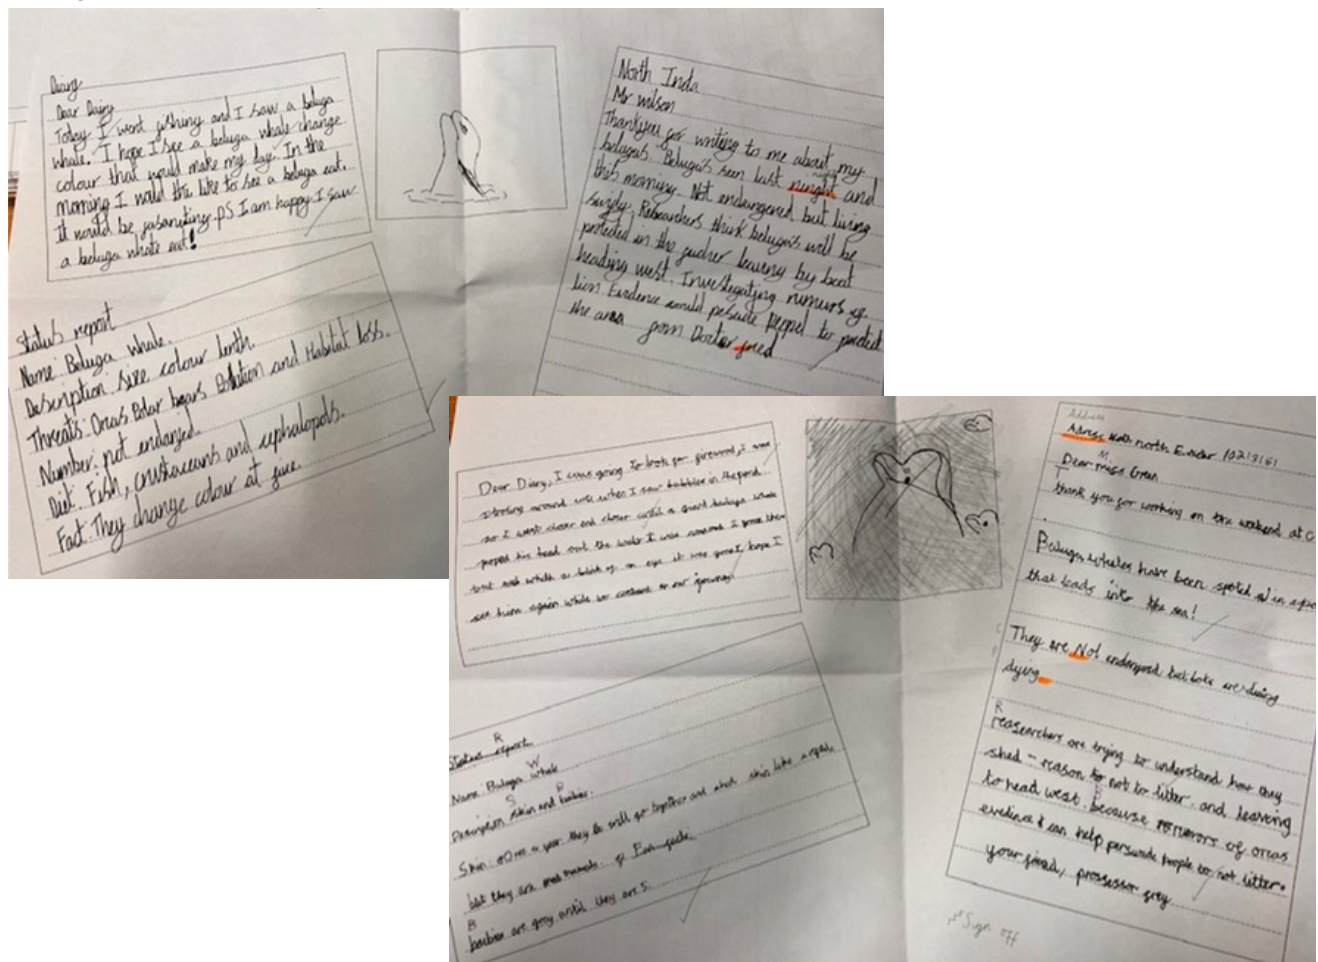 Diary
Dear Dairy
Today I went fishing and I saw a beluga
whale. I hope I see a beluga whale change
colour that would make my day. In the
morning I would like to see a beluga eat.
It would be fasanating. PS I am happy I saw
a beluga whale eat!
Status report
Name: Beluga whale.
Description: size colour lenth.
Threats: Orcas Polar bears Polution and Habitat loss.
Number: not endanged.
Diet: Fish, crustaceans and cephalopods.
Fact: They change colour at five.
North Inda
Mr wilson
Thankyou for writing to me about my
beluga's. Beluga's seen last and
this morning. Not endangered but living
Researchers think beluga's will be
in the by boat
heading west. Investegating rumurs of
lion Evidence would pesuade Peopel to
the area from Doctor
Dear Diary, I was going to look for firewood, I was
around when I saw bubbles in the pond
so I went closer and closer until a giant beluga whale
poped his head out the water I was amazed I
and within a blink of an eye it was gone I hope I
see him again while we continue on our
Status report
R
Name: Beluga whale
W
Description skin and babies.
S
Skin: once a year they will get together and shed skin like a
but they are Fun facts:
B
babies are grey until they are 5.
Address
Adress north Exeter
M
Dear miss Green
T
thank you for working on the weekend at
Beluga whales have been spoted in a
that leads into the sea!
They are Not endangerd but
dying
R
reasearchers are trying to understand how they
shed - reason to not to litter. and leaving
B
to head west. because rumors of orcas
evedince I can help persuade people to not litter.
your friend, prosessor grey
Sign off